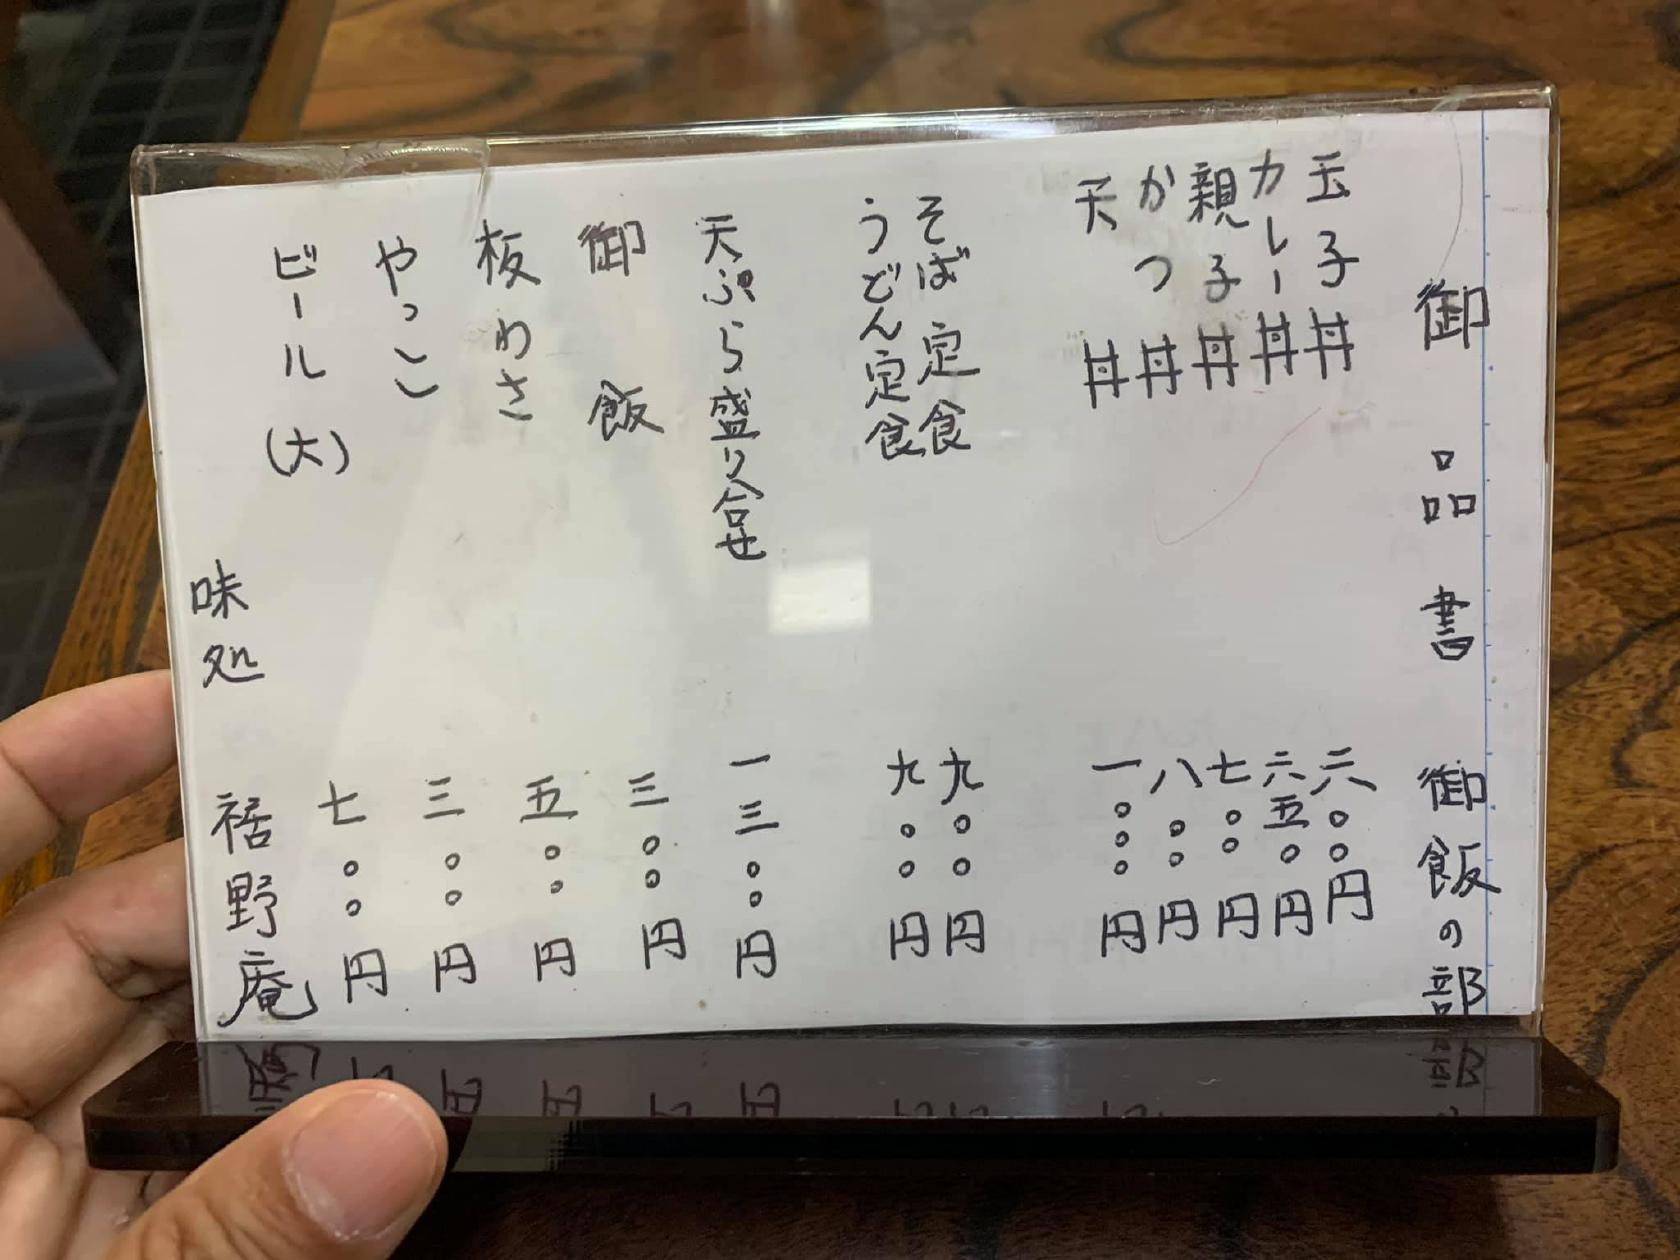 御品書 御飯の部
玉子丼 六〇〇円
カレー丼 六五〇円
親子丼 七〇〇円
かつ丼 八〇〇円
天丼 一〇〇〇円
そば定食 九〇〇円
うどん定食 九〇〇円
天ぷら盛り合せ 一三〇〇円
御飯 三〇〇円
板わさ 五〇〇円
やっこ 三〇〇円
ビール(大) 七〇〇円
味処 裾野庵